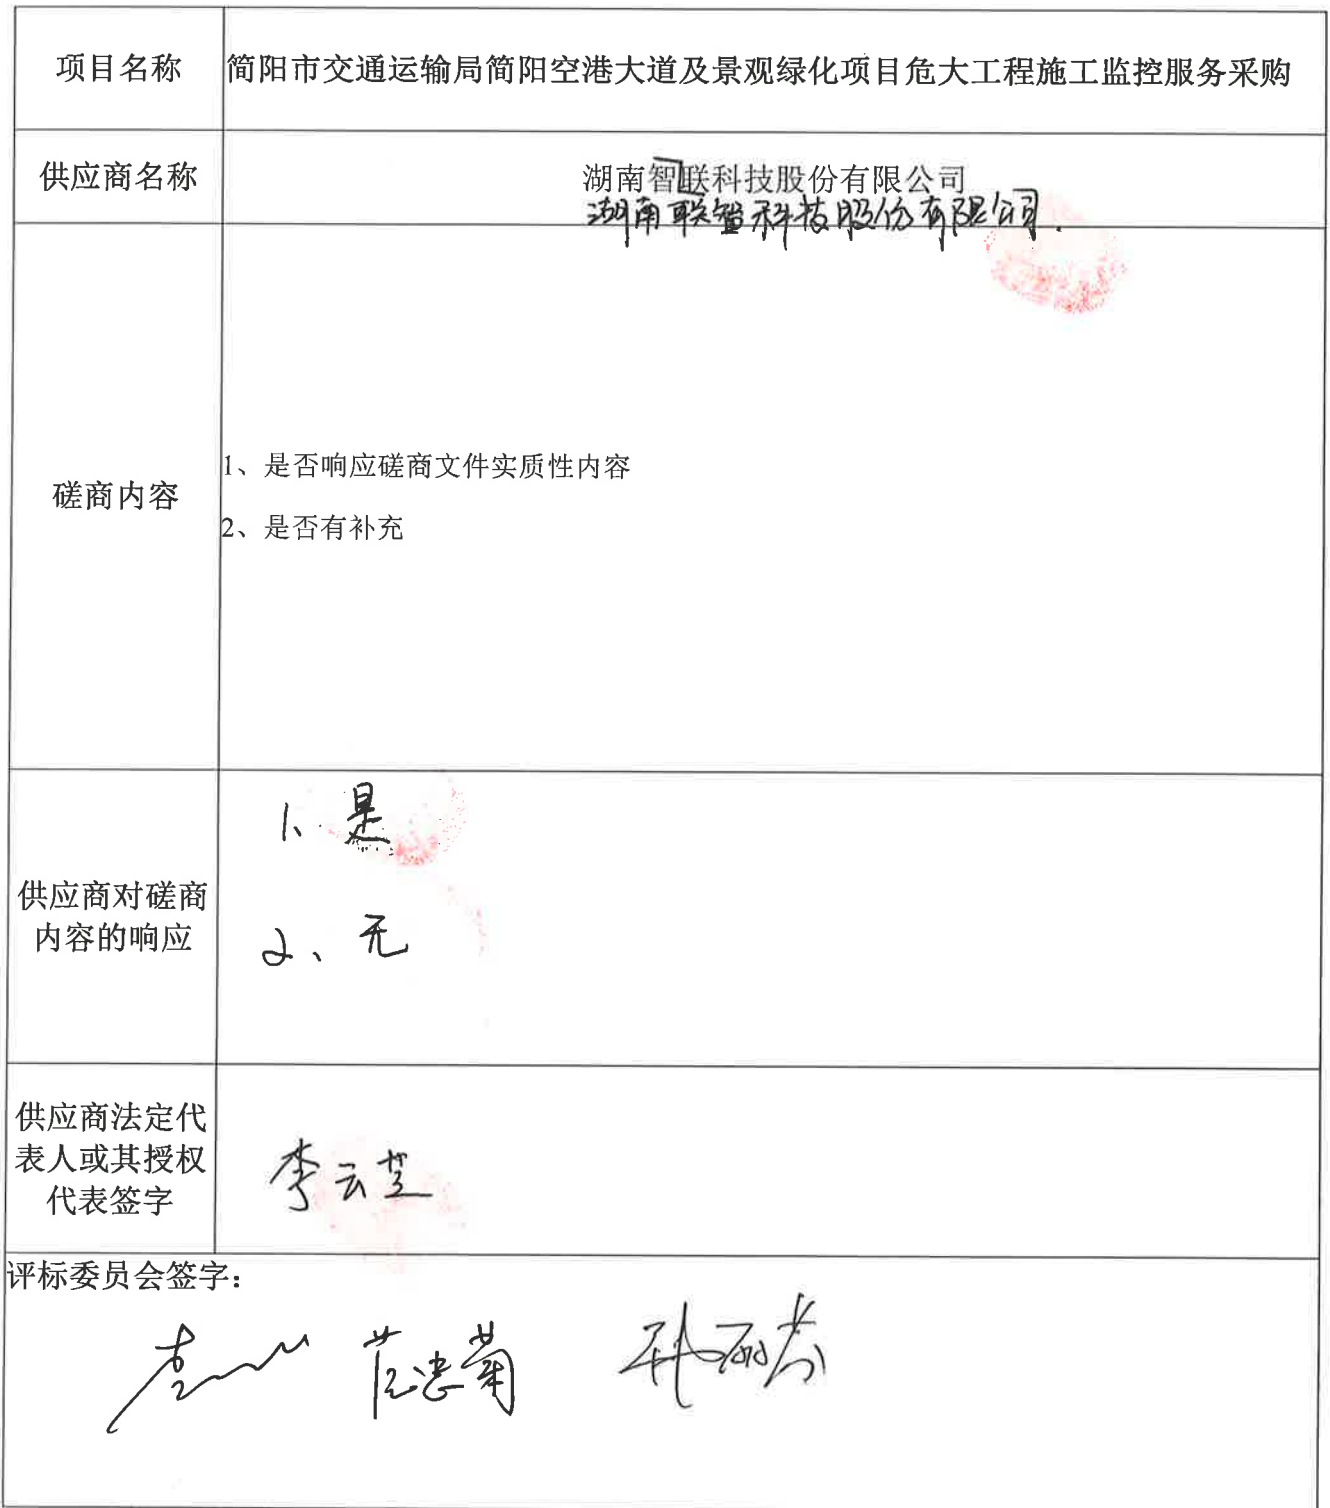 项目名称
简阳市交通运输局简阳空港大道及景观绿化项目危大工程施工监控服务采购
供应商名称
湖南智联科技股份有限公司
湖南联智科技股份有限公司.
磋商内容
1、是否响应磋商文件实质性内容
2、是否有补充
供应商对磋商
内容的响应
1、是
2、无
供应商法定代
表人或其授权
代表签字
李云芝
评标委员会签字：